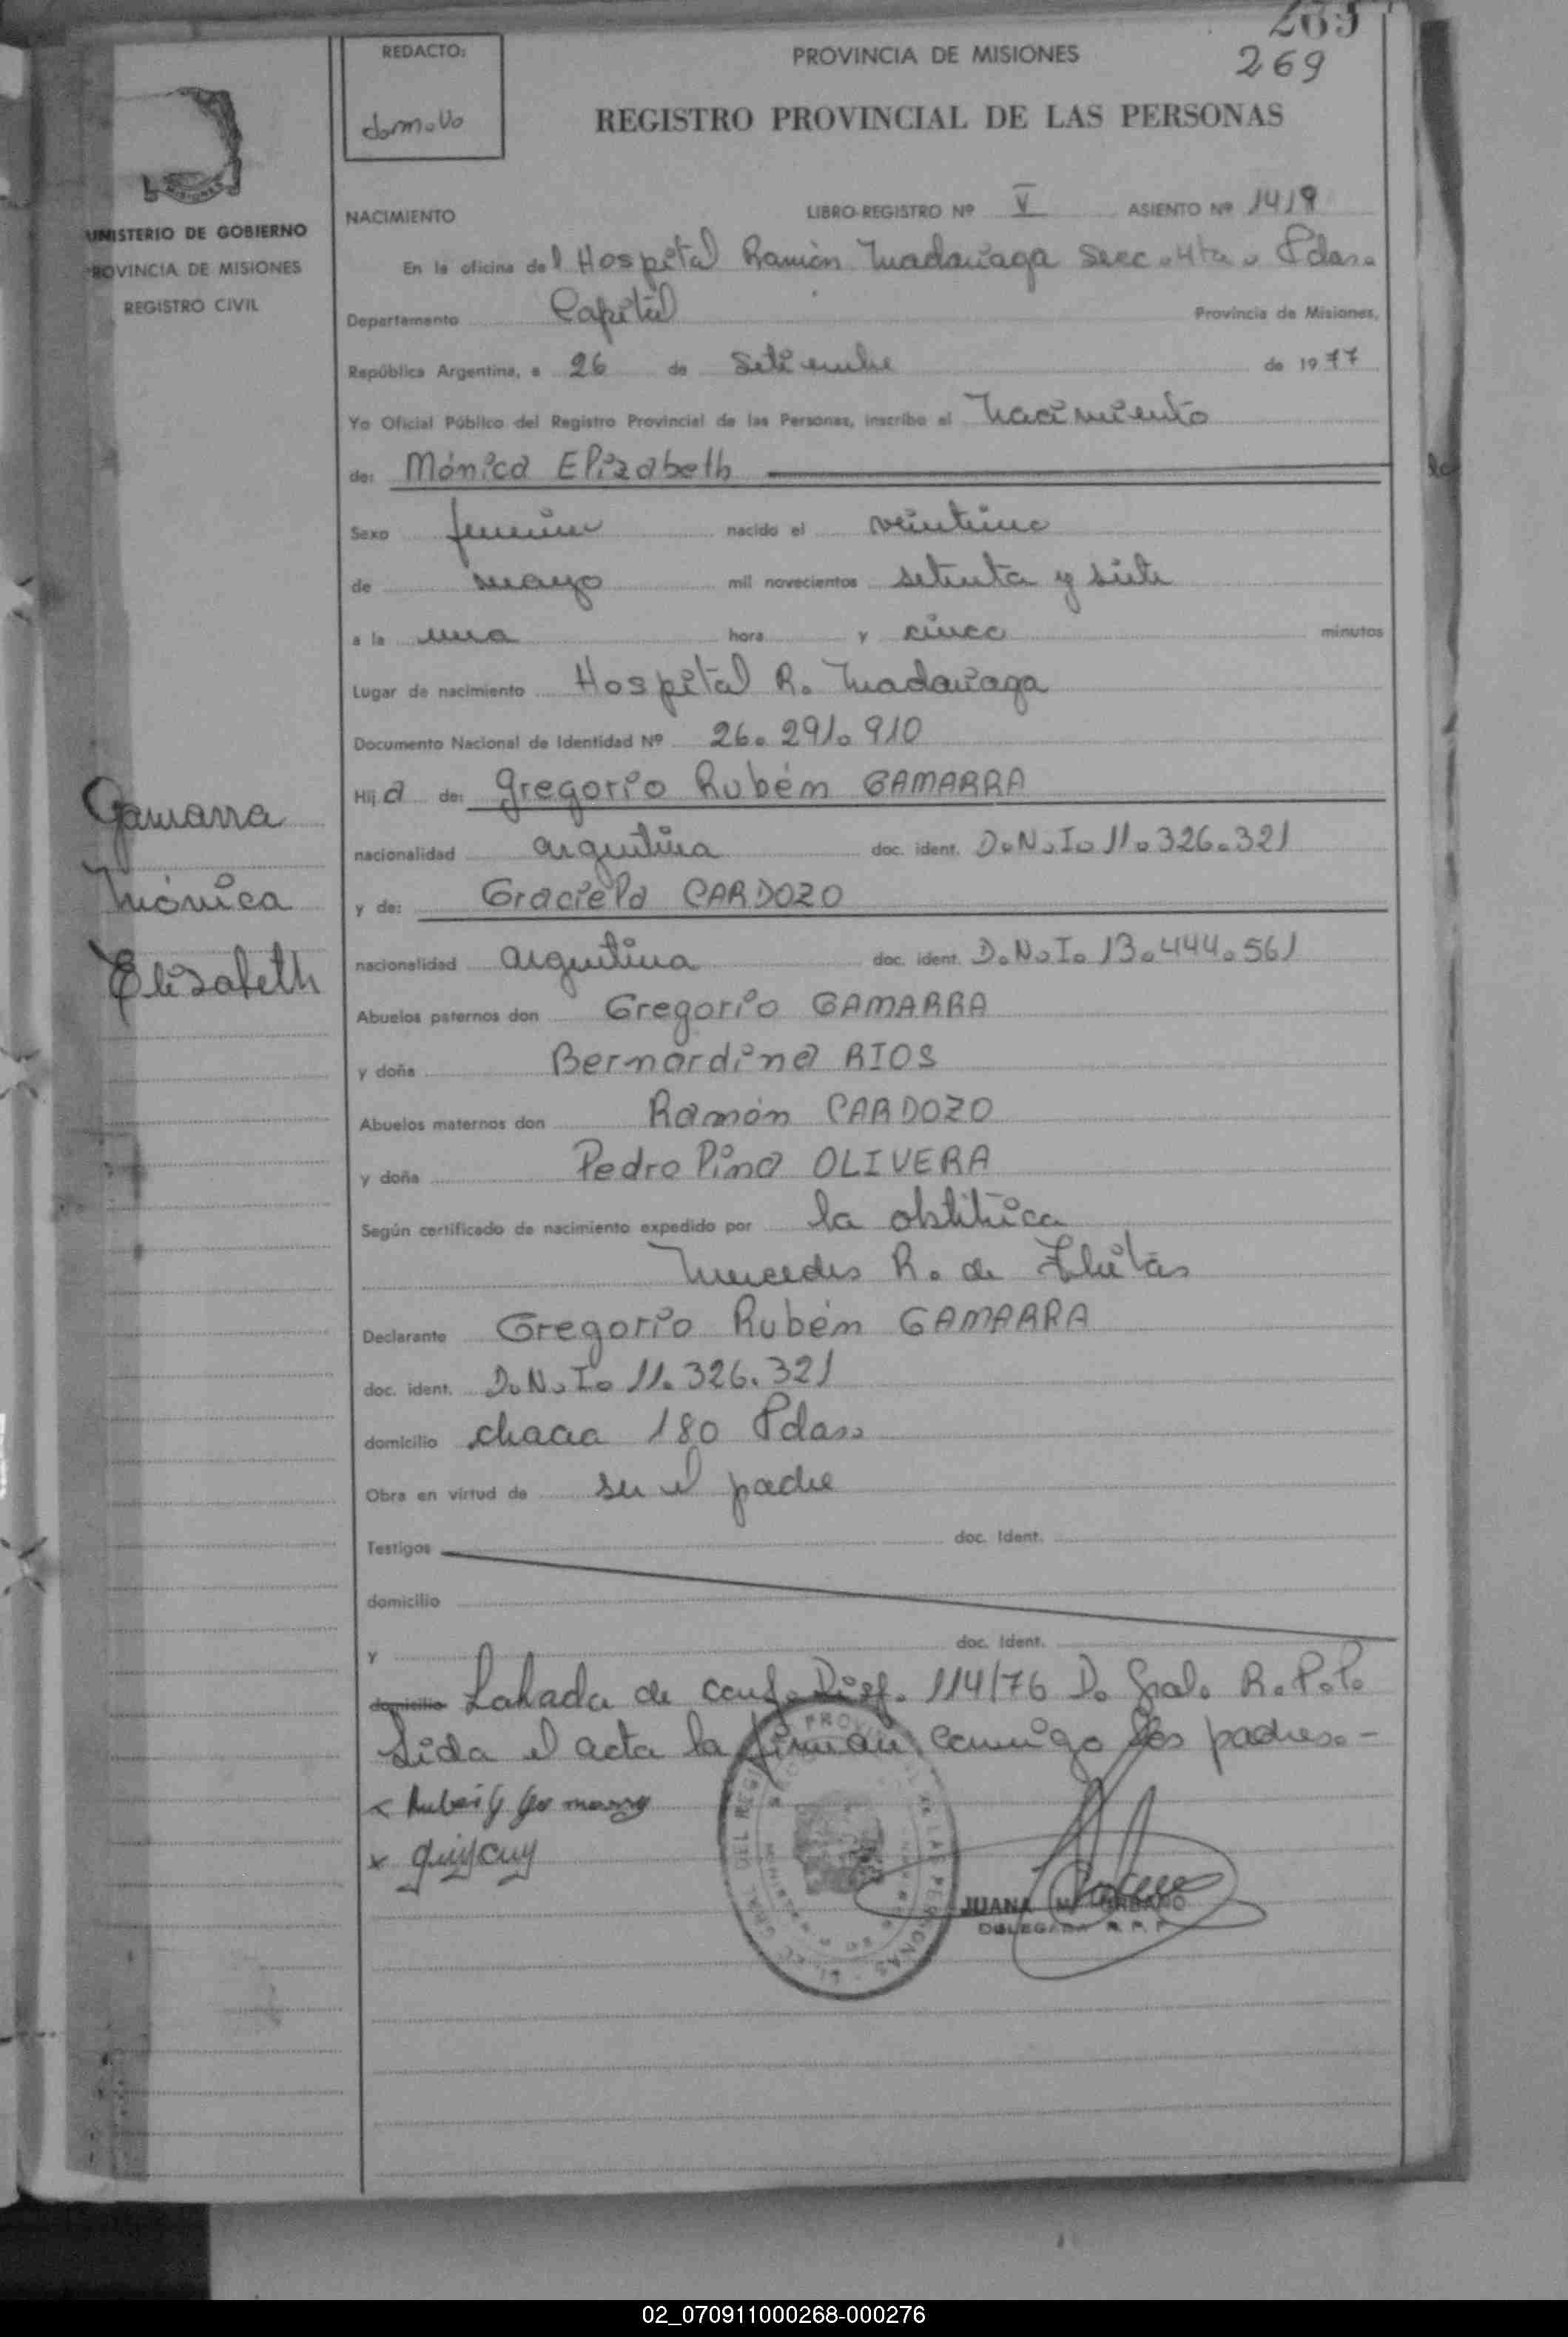 265
269
REDACTO:
PROVINCIA DE MISIONES
REGISTRO PROVINCIAL DE LAS PERSONAS
MISIONES
MINISTERIO DE GOBIERNO
PROVINCIA DE MISIONES
REGISTRO CIVIL
NACIMIENTO LIBRO-REGISTRO Nº V ASIENTO Nº 1419
En la oficina del Hospital Ramón Madariaga Secc. 4ta. Pdas.
Departamento Capital Provincia de Misiones,
República Argentina, a 26 de Setiembre de 1977
Yo Oficial Público del Registro Provincial de las Personas, inscribo el Nacimiento
de: Mónica Elizabeth
Sexo femenino nacido el veintiuno
de mayo mil novecientos setenta y siete
a la una hora y cinco minutos
Lugar de nacimiento Hospital R. Madariaga
Documento Nacional de Identidad Nº 26.291.910
Hija de: Gregorio Rubén GAMARRA
nacionalidad argentina doc. ident. D.N.I. 11.326.321
y de: Graciela CARDOZO
nacionalidad argentina doc. ident. D.N.I. 13.444.561
Abuelos paternos don Gregorio GAMARRA
y doña Bernardina RIOS
Abuelos maternos don Ramón CARDOZO
y doña Pedro Pina OLIVERA
Según certificado de nacimiento expedido por la obstétrica
Mercedes R. de
Declarante Gregorio Rubén GAMARRA
doc. ident. D.N.I. 11.326.321
domicilio chacra 180 Pdas.
Obra en virtud de ser el padre
Testigos doc. Ident.
domicilio
y doc. Ident.
domicilio Labrada de conf. Disp. 114/76 D. Gral. R.P.P.
Leida el acta la firman conmigo los padres.-
JUANA M. URBANO
DELEGADA R.P.P.
Gamarra
Mónica
Elizabeth
02_070911000268-000276